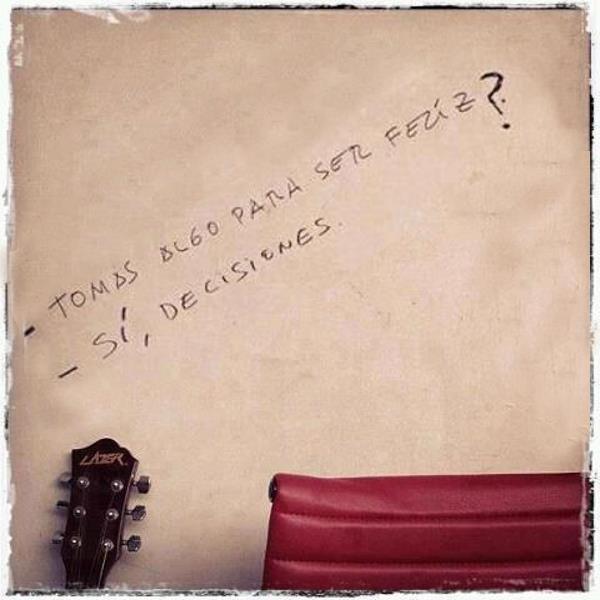 - TOMAS ALGO PARA SER FELÍZ?
- SÍ, DECISIONES.
LAZER